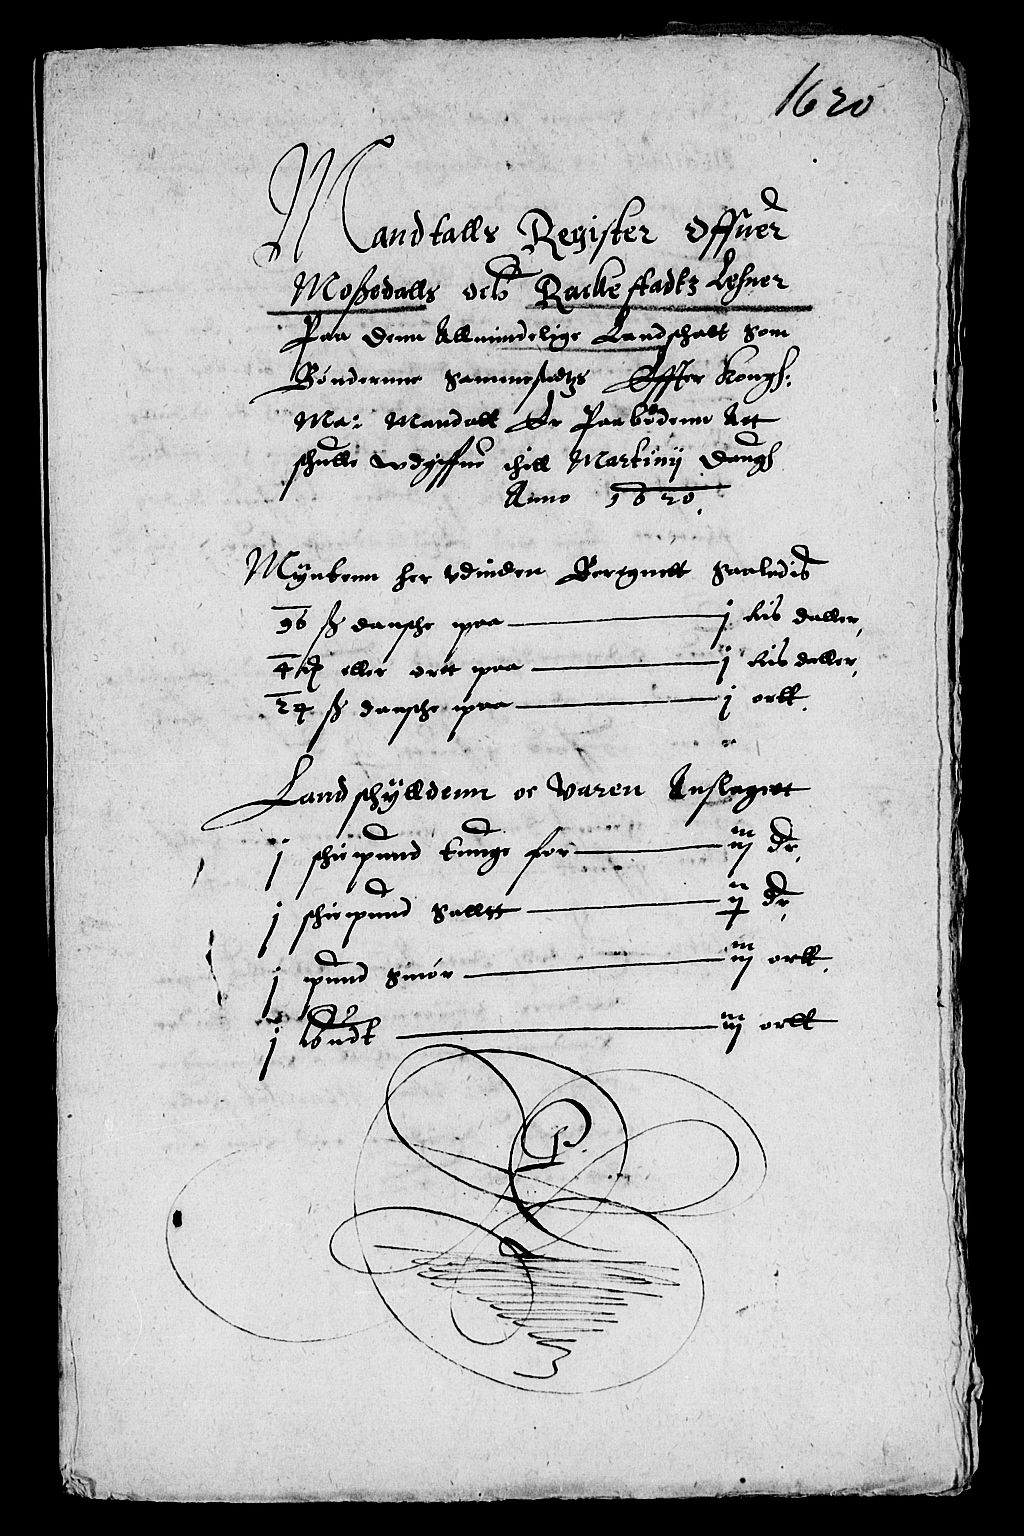 1620
Mandtalls Register Offuer
Moßedalls och Rackestadtz Lehner
Paa denn Allmindelige Landschatt Som
Bøndernne Sammestedtz Effter Kongh:
Ma: Mandatt Er Paabødenn Att
schulle vdgiffue thill Martinij Daugh
Anno 1620.
Mÿntenn her vdinden Beregnett Saaledis
96 ß dansche paa — j Ris daller,
4 eller ortt paa — j Ris daller,
24 ß dansche paa — j ortt.
Landschÿlldenn oc Varen Anslagett
j schippund tunge for — iij dr,
j schippund Salltt — ij dr,
j pund Smør — iij ortt.
j Hudt — iij ortt